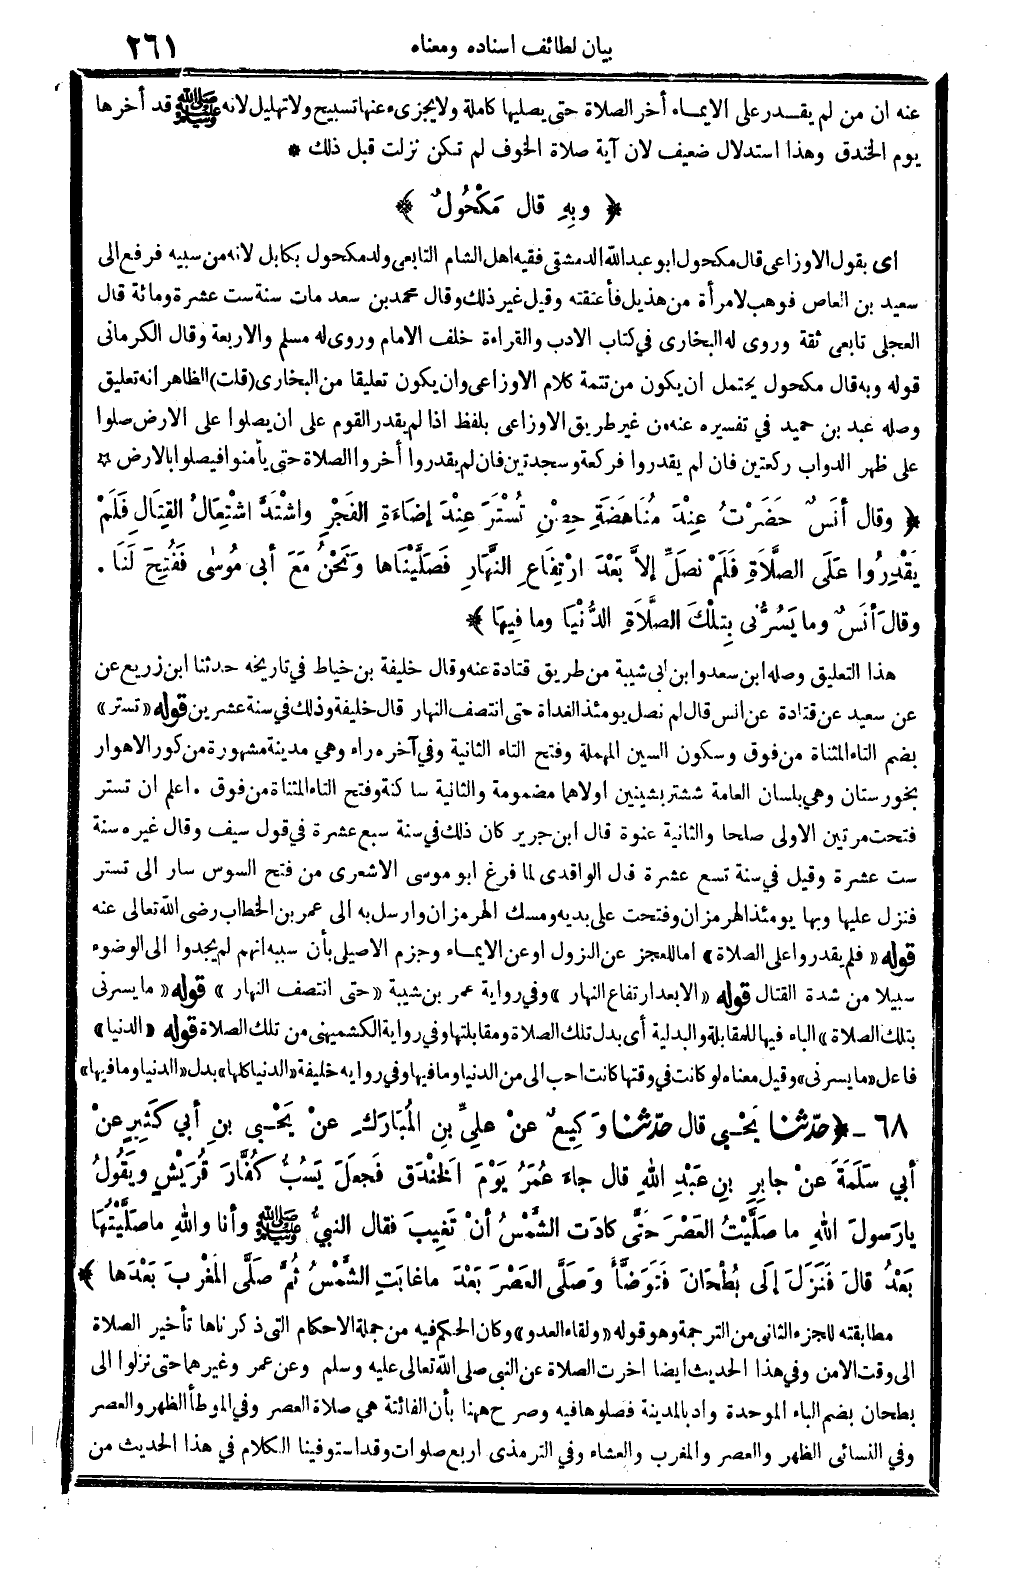 بيان لطائف اسناده ومعناه ٢٦١
عنه ان من لم يقدر على الايماء أخر الصلاة حتى يصليها كاملة ولايجزىء عنها تسبيح ولا تهليل لانه ﷺ قد أخرها
يوم الخندق وهذا استدلال ضعيف لان آية صلاة الخوف لم تكن نزلت قبل ذلك *
﴿ وبِهِ قال مَكْحُولٌ ﴾
اى بقول الاوزاعى قال مكحول ابو عبد الله الدمشقى فقيه اهل الشام التابعى ولد مكحول بكابل لانه من سبيه فرفع الى
سعيد بن العاص فوهب لامرأة من هذيل فأعتقته وقيل غير ذلك وقال محمد بن سعد مات سنة ست عشرة ومائة قال
العجلى تابعى ثقة وروى له البخارى في كتاب الادب والقراءة خلف الامام وروى له مسلم والاربعة وقال الكرمانى
قوله وبه قال مكحول يحتمل ان يكون من تتمة كلام الاوزاعى وان يكون تعليقا من البخارى (قلت) الظاهر انه تعليق
وصله عبد بن حميد في تفسيره عنه من غير طريق الاوزاعى بلفظ اذا لم يقدر القوم على ان يصلوا على الارض صلوا
على ظهر الدواب ركعتين فان لم يقدروا فركعة وسجدتين فان لم يقدروا أخروا الصلاة حتى يأمنوا فيصلوا بالارض *
﴿ وقال أنَسٌ حَضَرْتُ عِنْدَ مُنَاهَضَةِ حِصْنِ تُسْتَرَ عِنْدَ إضَاءَةِ الفَجْرِ واشْتَدَّ اشْتِعَالُ القِتَالِ فَلَمْ
يَقْدِرُوا عَلَى الصَّلَاةِ فَلَمْ نصَلِّ إلاَّ بَعْدَ ارْتِفَاعِ النَّهَارِ فَصَلَّيْنَاها وَنَحْنُ مَعَ أبى مُوسَى فَفُتِحَ لَنَا .
وقالَ أنَسٌ وما يَسُرُّنى بِتِلْكَ الصَّلَاةِ الدُّنْيَا وما فِيهَا ﴾
هذا التعليق وصله ابن سعد وابن ابى شيبة من طريق قتادة عنه وقال خليفة بن خياط في تاريخه حدثنا ابن زريع عن
عن سعيد عن قتادة عن انس قال لم نصل يومئذ الغداة حتى انتصف النهار قال خليفة وذلك في سنة عشرين قوله «تستر»
بضم التاء المثناة من فوق وسكون السين المهملة وفتح التاء الثانية وفي آخره راء وهي مدينة مشهورة من كور الاهوار
بخورستان وهي بلسان العامة ششتر بشينين اولاهما مضمومة والثانية ساكنة وفتح التاء المثناة من فوق . اعلم ان تستر
فتحت مرتين الاولى صلحا والثانية عنوة قال ابن جرير كان ذلك في سنة سبع عشرة في قول سيف وقال غيره سنة
ست عشرة وقيل في سنة تسع عشرة قال الواقدى لما فرغ ابو موسى الاشعرى من فتح السوس سار الى تستر
فنزل عليها وبها يومئذ الهرمزان وفتحت على يديه ومسك الهرمزان وارسل به الى عمر بن الخطاب رضى الله تعالى عنه
قوله «فلم يقدروا على الصلاة» اما للعجز عن النزول او عن الايماء وجزم الاصيلى بأن سببه انهم لم يجدوا الى الوضوء
سبيلا من شدة القتال قوله «الا بعد ارتفاع النهار» وفي رواية عمر بن شيبة «حتى انتصف النهار» قوله «ما يسرنى
بتلك الصلاة» الباء فيها للمقابلة والبدلية أى بدل تلك الصلاة ومقابلتها وفي رواية الكشميهنى من تلك الصلاة قوله «الدنيا»
فاعل «ما يسرنى» وقيل معناه لو كانت في وقتها كانت احب الى من الدنيا وما فيها وفي روايه خليفة «الدنيا كلها» بدل «الدنيا وما فيها»
٦٨ - ﴿ حدّثنا يَحْيى قال حدّثنا وَكِيعٌ عنْ علىِّ بنِ المُبَارَكِ عنْ يَحْيى بنِ أبي كَثِيرٍ عنْ
أبي سَلَمَةَ عنْ جابِرِ بنِ عَبْدِ اللهِ قال جاءَ عُمَرُ يَوْمَ الخَنْدَقِ فَجعلَ يَسُبُّ كُفَّارَ قُرَيْشٍ ويَقُولُ
يارَسولَ اللهِ ما صَلَّيْتُ العَصْرَ حَتَّى كادَت الشَّمْسُ أنْ تَغِيبَ فقال النبيُّ ﷺ وأنا واللهِ ماصَلَّيْتُهَا
بَعْدُ قالَ فَنَزَلَ إلَى بُطْحَانَ فَتَوَضَّأَ وَصَلَّى العَصْرَ بَعْدَ ماغابَتِ الشَّمْسُ ثُمَّ صَلَّى المَغْرِبَ بَعْدَها ﴾
مطابقته للجزء الثانى من الترجمة وهو قوله «ولقاء العدو» وكان الحكم فيه من جملة الاحكام التى ذكرناها تأخير الصلاة
الى وقت الامن وفي هذا الحديث ايضا اخرت الصلاة عن النبي صلى الله تعالى عليه وسلم وعن عمر وغيرهما حتى نزلوا الى
بطحان بضم الباء الموحدة واد بالمدينة فصلوها فيه وصرح ههنا بأن الفائتة هي صلاة العصر وفي الموطأ الظهر والعصر
وفي النسائى الظهر والعصر والمغرب والعشاء وفي الترمذى اربع صلوات وقد استوفينا الكلام في هذا الحديث من